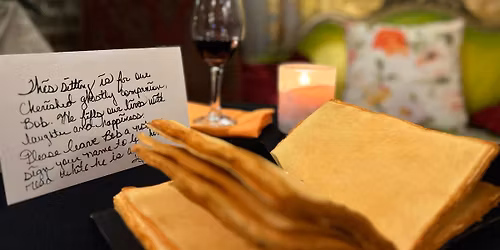 This setting is for our
Cherished ghostly companion,
Bob. He fills our lives with
laughter and happiness.
Please leave Bob a
sign your name to
read while he is a